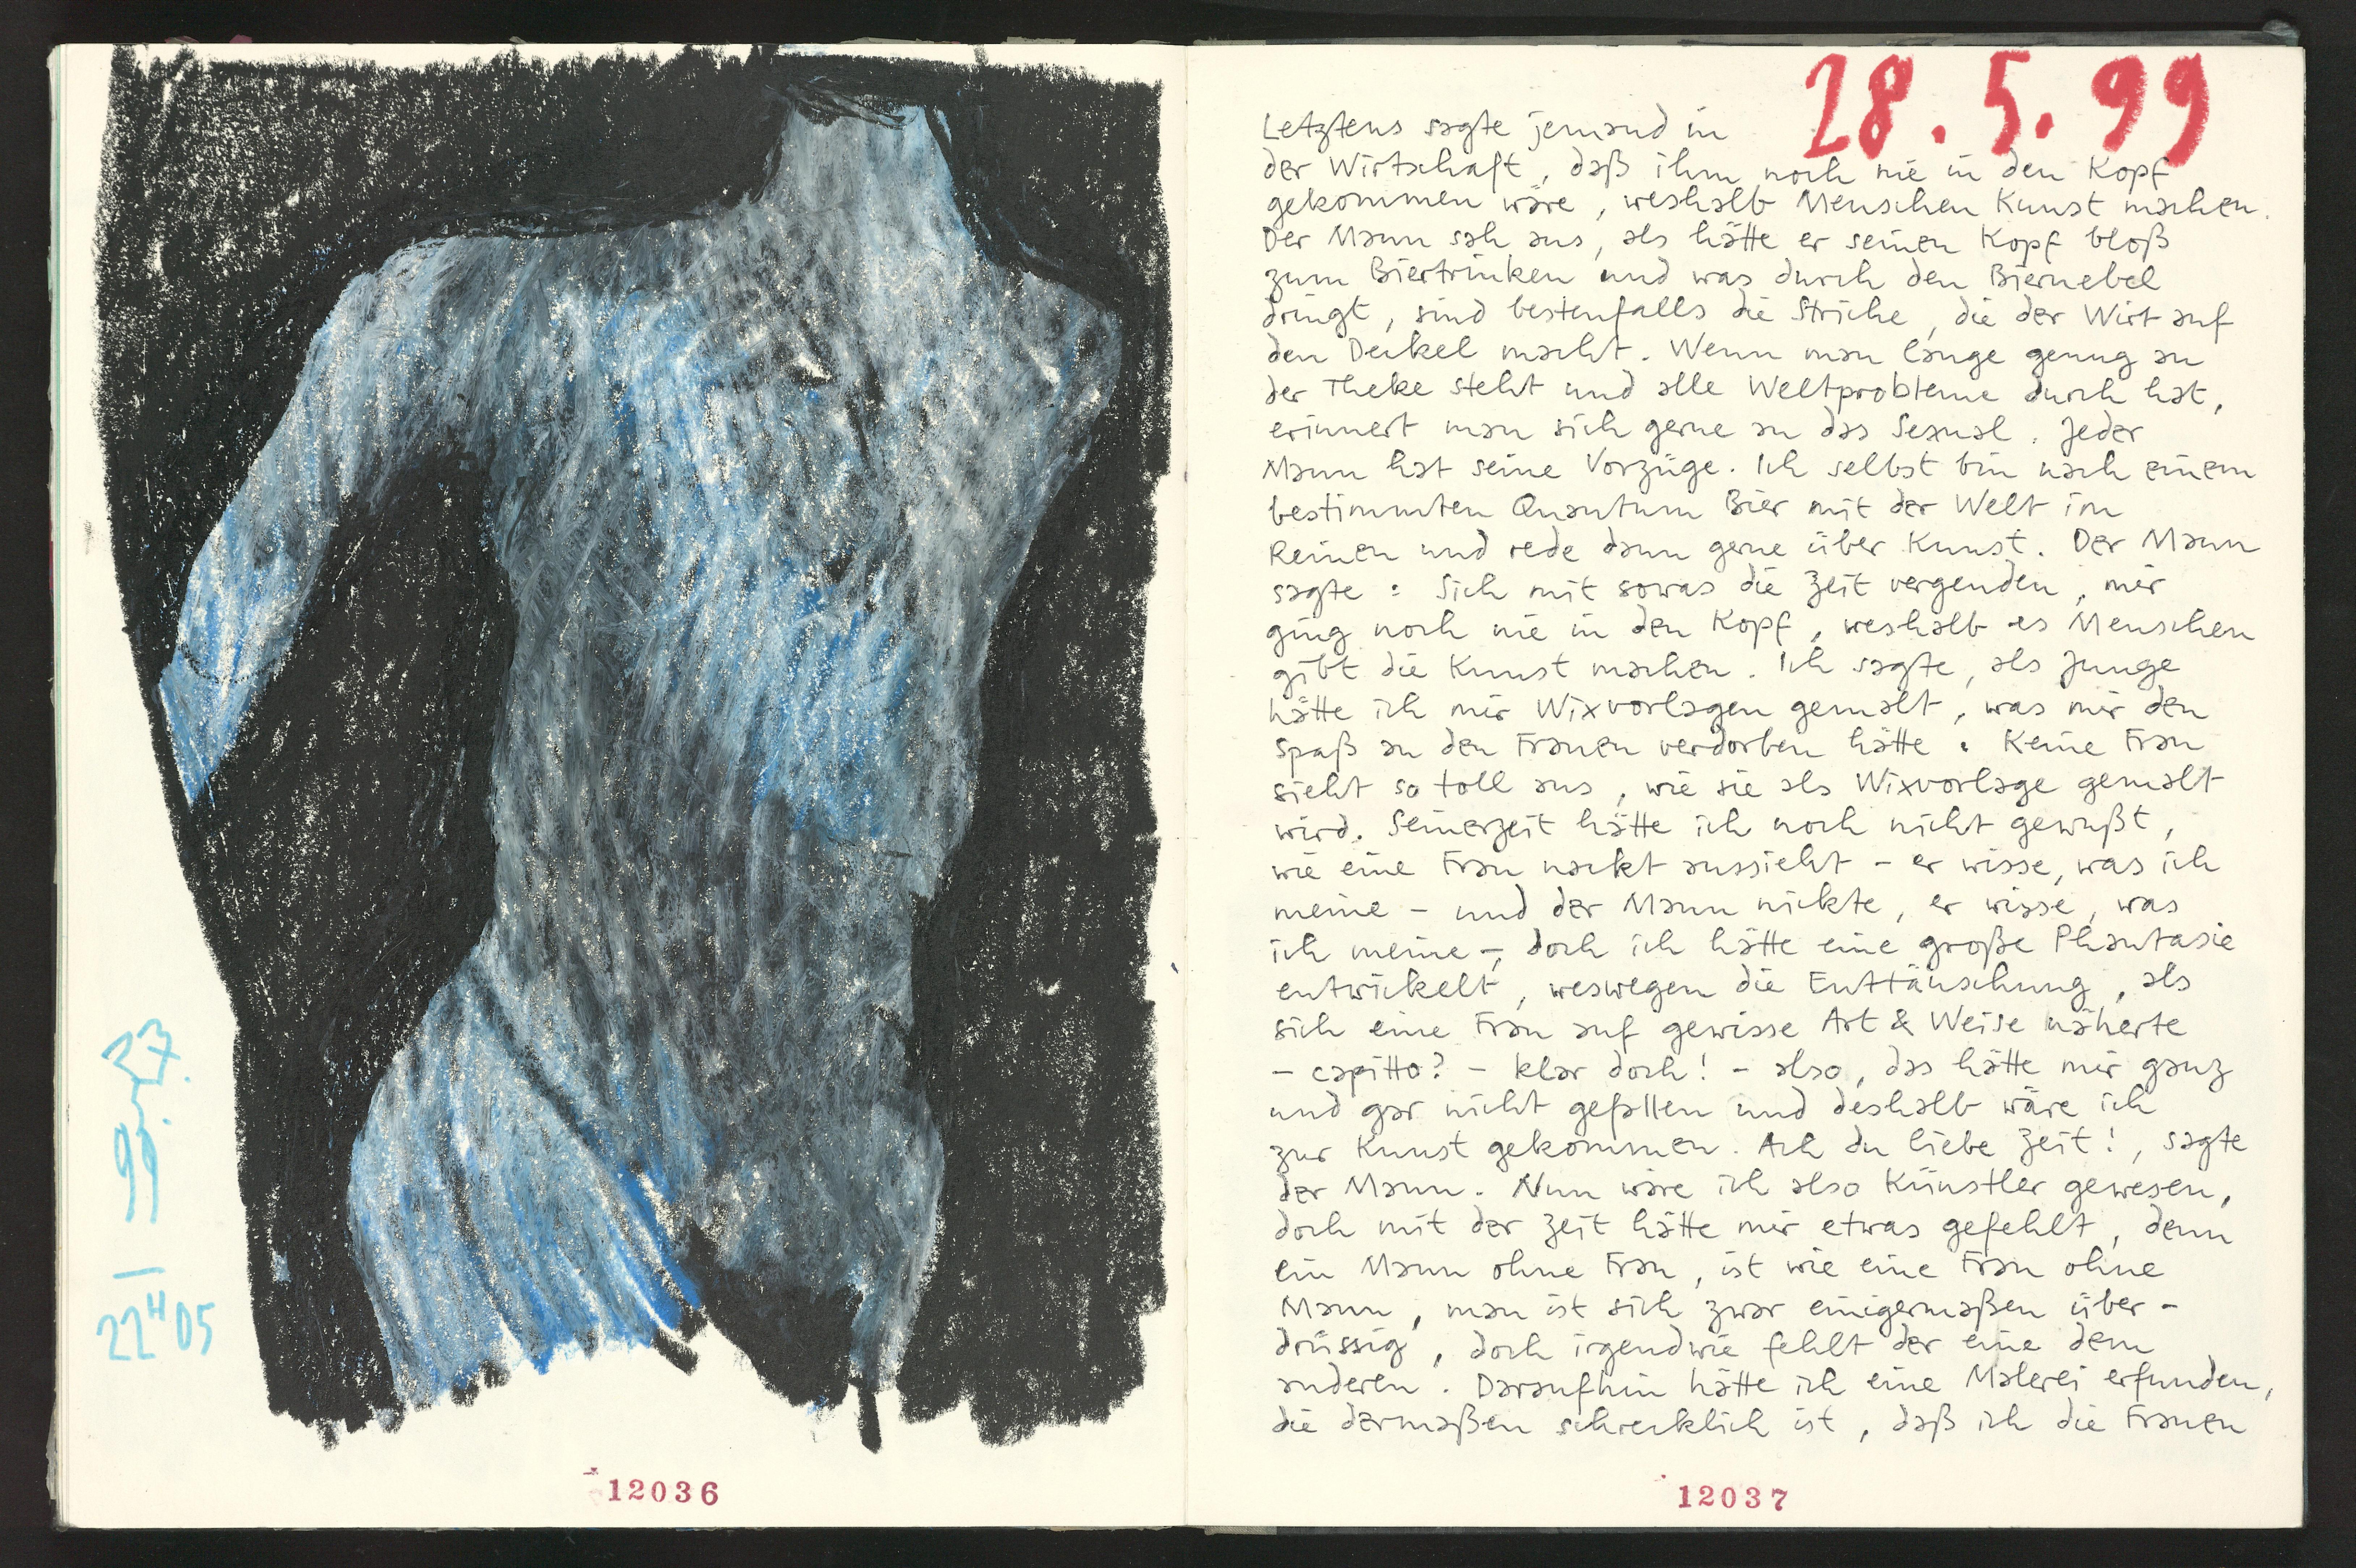 27.
5.
99
22H05
12036
28.5.99
Letztens sagte jemand in
der Wirtschaft, daß ihm noch nie in den Kopf
gekommen wäre, weshalb Menschen Kunst machen.
Der Mann sah aus, als hätte er seinen Kopf bloß
zum Biertrinken und was durch den Biernebel
dringt, sind bestenfalls die Striche, die der Wirt auf
den Deckel macht. Wenn man lange genug an
der Theke steht und alle Weltprobleme durch hat,
erinnert man sich gerne an das Sexual. Jeder
Mann hat seine Vorzüge. Ich selbst bin nach einem
bestimmten Quantum Bier mit der Welt im
Reinen und rede dann gerne über Kunst. Der Mann
sagte: Sich mit sowas die Zeit vergeuden, mir
ging noch nie in den Kopf, weshalb es Menschen
gibt die Kunst machen. Ich sagte, als Junge
hätte ich mir Wixvorlagen gemalt, was mir den
Spaß an den Frauen verdorben hätte. Keine Frau
sieht so toll aus, wie sie als Wixvorlage gemalt
wird. Seinerzeit hätte ich noch nicht gewußt,
wie eine Frau nackt aussieht – er wisse, was ich
meine – und der Mann nickte, er wisse, was
ich meine –, doch ich hätte eine große Phantasie
entwickelt, weswegen die Enttäuschung, als
sich eine Frau auf gewisse Art & Weise näherte
– capitto? – klar doch! – also, das hätte mir ganz
und gar nicht gefallen und deshalb wäre ich
zur Kunst gekommen. Ach du liebe Zeit!, sagte
der Mann. Nun wäre ich also Künstler gewesen,
doch mit der Zeit hätte mir etwas gefehlt, denn
ein Mann ohne Frau, ist wie eine Frau ohne
Mann, man ist sich zwar einigermaßen über-
drüssig, doch irgendwie fehlt der eine dem
anderen. Daraufhin hätte ich eine Malerei erfunden,
die dermaßen schrecklich ist, daß ich die Frauen
12037